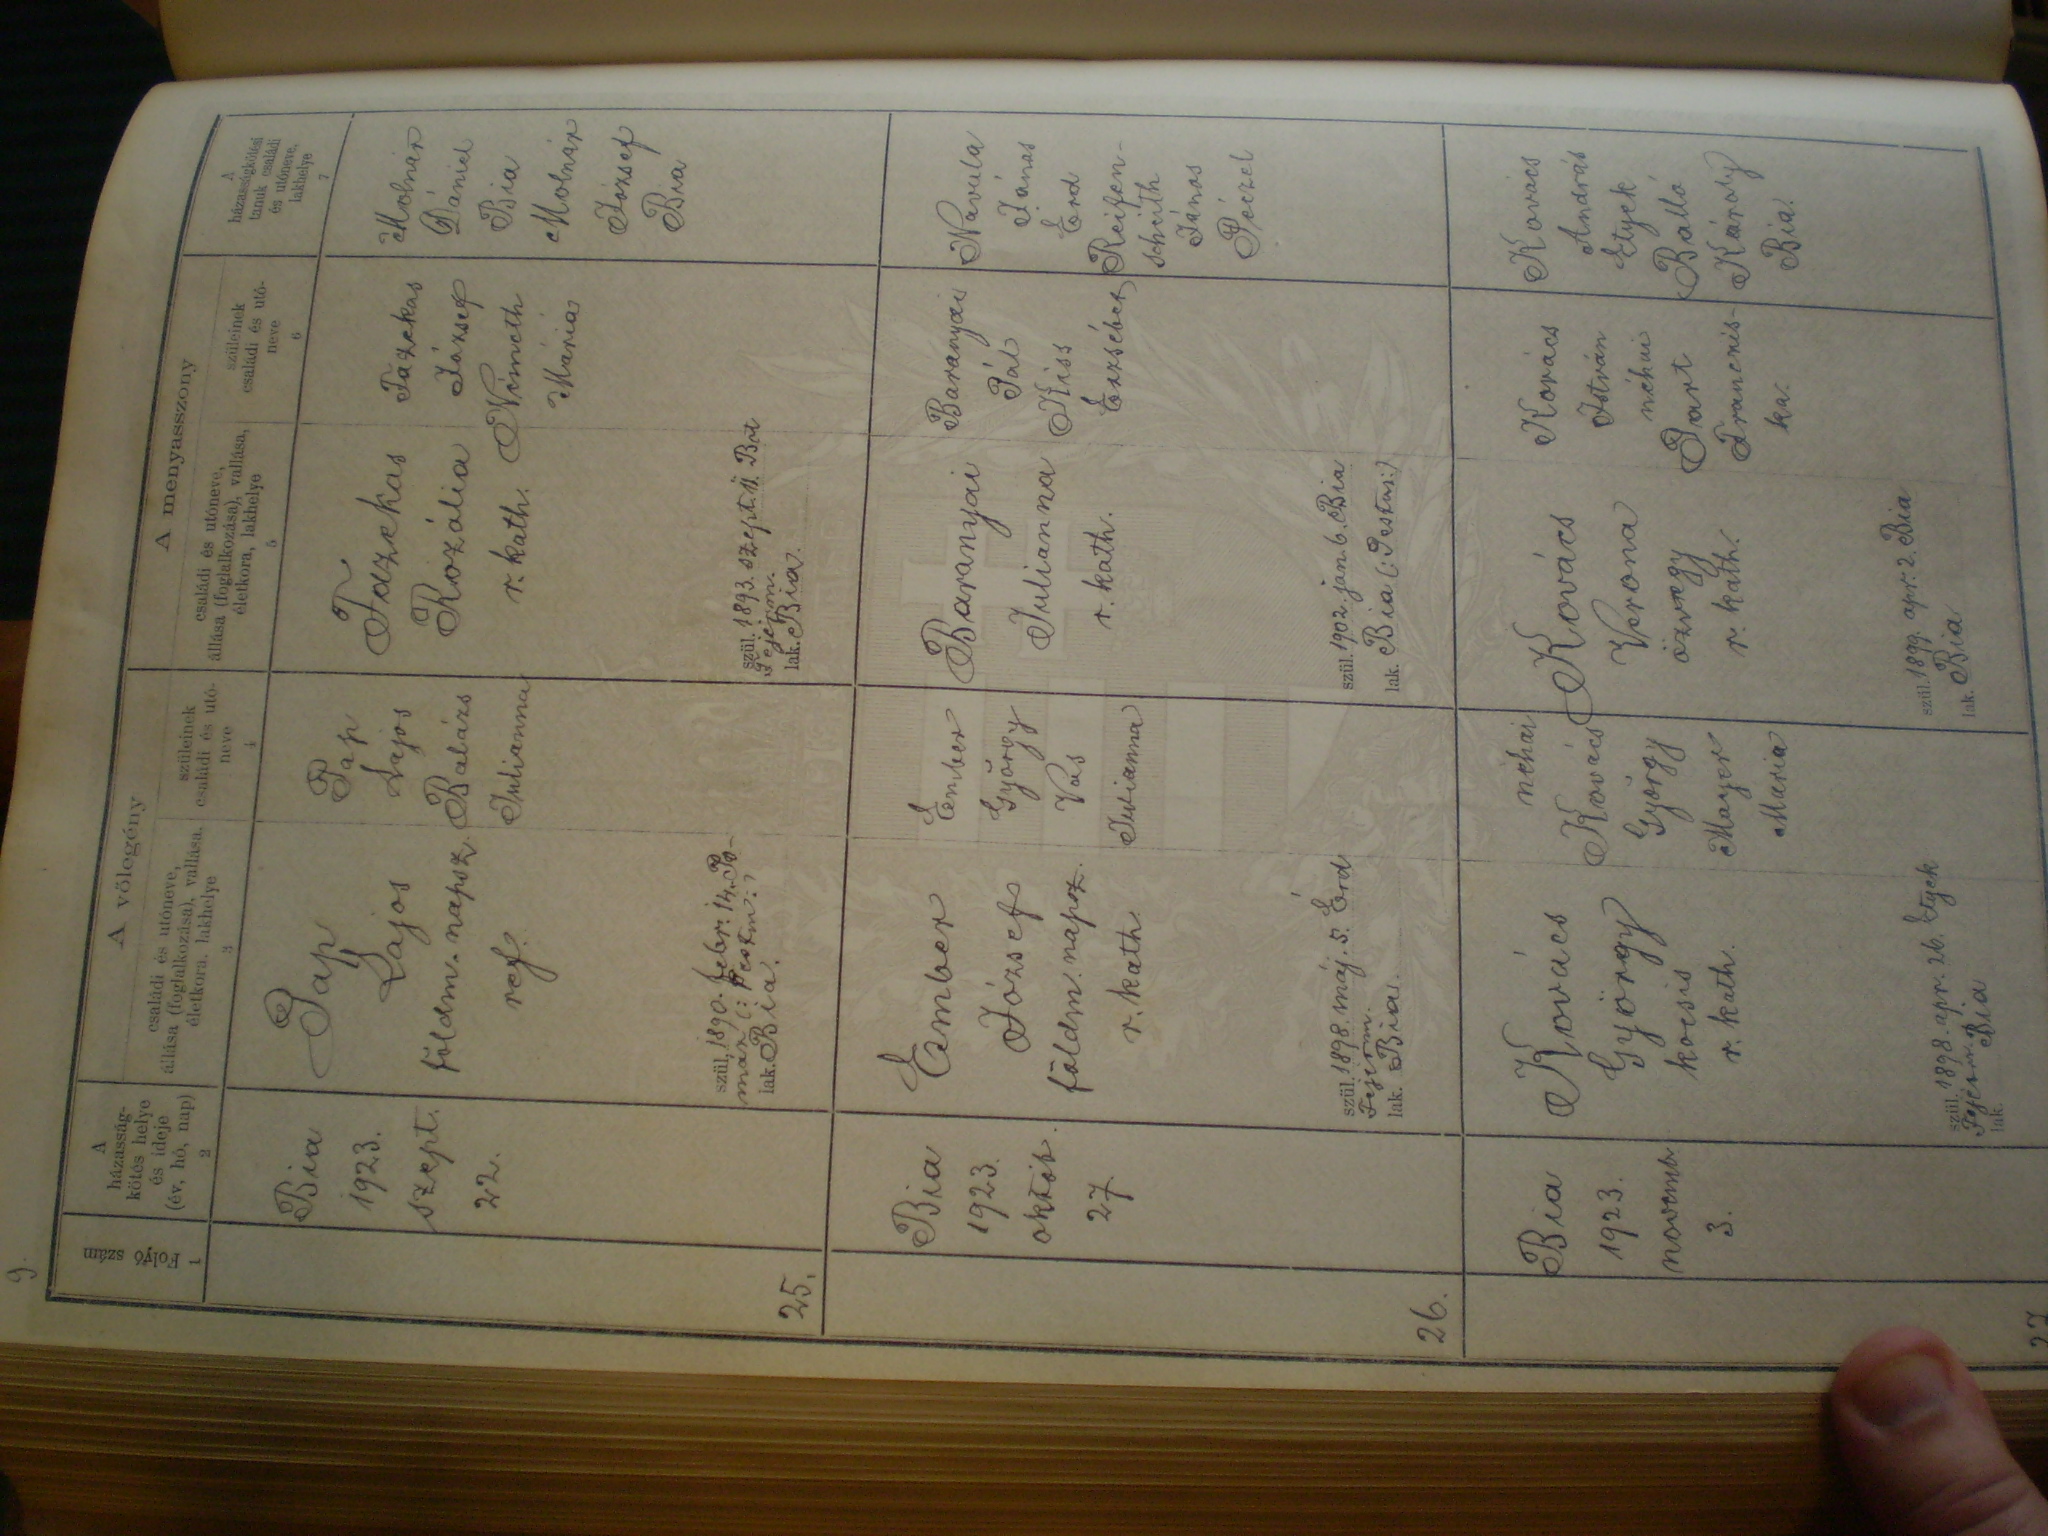 9.
A vőlegény
A menyasszony
Folyó szám
1
A
házasság-
kötés helye
és ideje
(év, hó, nap)
2
családi és utóneve,
állása (foglalkozása), vallása,
életkora, lakhelye
3
szüleinek
családi és utó-
neve
4
családi és utóneve,
állása (foglalkozása), vallása,
életkora, lakhelye
5
szüleinek
családi és utó-
neve
6
A
házasságkötési
tanuk családi
és utóneve,
lakhelye
7
25.
Bia
1923.
szept.
22.
Pap
Lajos
földm. napsz.
ref.
szül. 1890. febr. 14. Po-
maz (: Pestm :)
lak. Bia.
Pap
Lajos
Balázs
Julianna
Fazekas
Rozália
r. kath.
szül. 1893. szept. 11. Bot
Fejérm.
lak. Bia.
Fazekas
József
Németh
Mária
Molnár
Dániel
Bia
Molnár
József
Bia
26.
Bia
1923.
október
27
Ember
József
földm. napsz.
r. kath.
szül. 1898. máj. 5. Érd
Fejérm.
lak. Bia.
Ember
György
Vas
Julianna
Baranyai
Julianna
r. kath.
szül. 1902. jan. 6. Bia
lak. Bia (: Pestm :)
Baranyai
Pál
Kiss
Erzsébet
Navula
János
Érd
Reifen-
scheith
János
Péczel
27
Bia
1923.
novemb.
3.
Kovács
György
kocsis
r. kath.
szül. 1898. apr. 26. Etyek
Fejérm.
lak. Bia
néhai
Kovács
György
Mayer
Maria
Kovács
Verona
özvegy
r. kath.
szül. 1899. apr. 2. Bia
lak. Bia
Kovács
István
néhai
Part
Francis-
ka.
Kovács
András
Etyek
Balla
Károly
Bia.